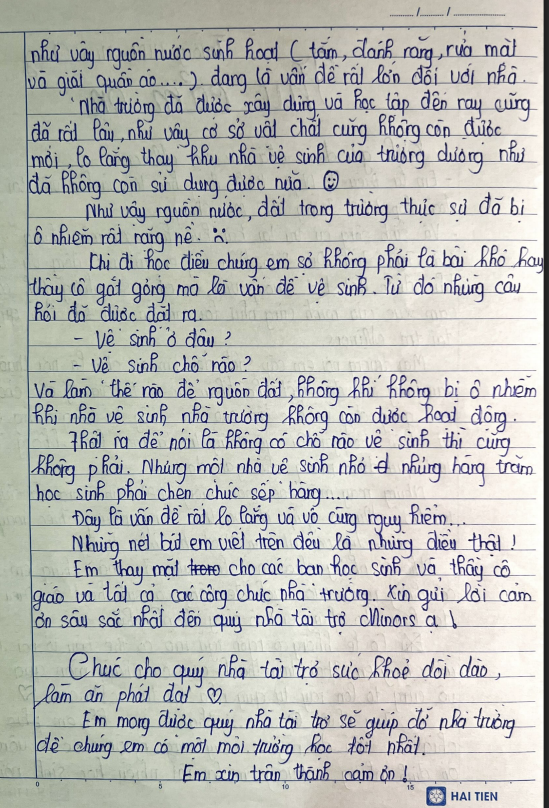 ....../....../............
như vậy nguồn nước sinh hoạt (tắm, đánh răng, rửa mặt
và giặt quần áo....) đang là vấn đề rất lớn đối với nhà.
Nhà trường đã được xây dựng và học tập đến nay cũng
đã rất lâu, như vậy cơ sở vật chất cũng không còn được
mới, lo lắng thay khu nhà vệ sinh của trường dường như
đã không còn sử dụng được nữa. ☺
Như vậy nguồn nước, đất trong trường thực sự đã bị
ô nhiễm rất nặng nề. ☹
Khi đi học điều chúng em sợ không phải là bài khó hay
thầy cô gắt gỏng mà là vấn đề vệ sinh. Từ đó những câu
hỏi đã được đặt ra.
- Vệ sinh ở đâu?
- Vệ sinh chỗ nào?
Và làm thế nào để nguồn đất, không khí không bị ô nhiễm
khi nhà vệ sinh nhà trường không còn được hoạt động.
Thật ra để nói là không có chỗ nào vệ sinh thì cũng
không phải. Nhưng một nhà vệ sinh nhỏ nhưng hàng trăm
học sinh phải chen chúc sếp hàng....
Đây là vấn đề rất lo lắng và vô cùng nguy hiểm...
Những nét bút em viết trên đều là những điều thật!
Em thay mặt cho các bạn học sinh và thầy cô
giáo và tất cả các công chức nhà trường. Xin gửi lời cảm
ơn sâu sắc nhất đến quý nhà tài trợ Minors ạ!
Chúc cho quý nhà tài trợ sức khoẻ dồi dào,
làm ăn phát đạt ♡
Em mong được quý nhà tài trợ sẽ giúp đỡ nhà trường
để chúng em có một môi trường học tốt nhất.
Em xin trân thành cảm ơn!
0 5 10 15
HAI TIEN